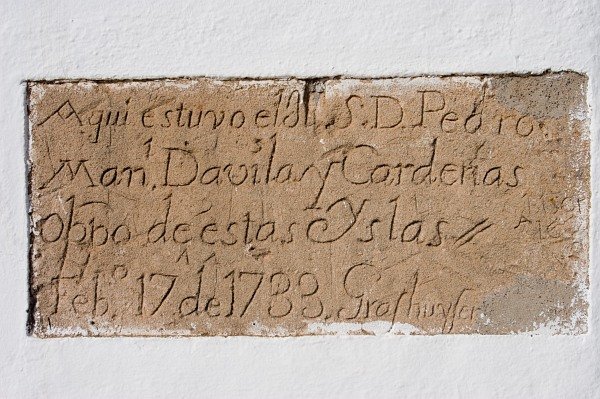 Aqui estuvo el Il. S. D. Pedro
Man. Davila y Cardenas
Obpo de estas Yslas
Feb.º 17 de 1733.